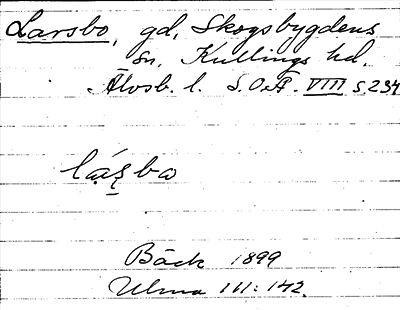 Larsbo, gd, Skogsbygdens
sn, Kullings hd.
Älvsb. l. S.O.Ä. VIII s.234
Bäck 1899
Ulma 111:142.